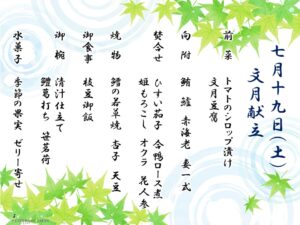 七月十九日(土)
文月献立
前菜 トマトのシロップ漬け
文月豆腐
向附 鮪 鱸 赤海老 妻一式
焚合せ ひすい茄子 合鴨ロース煮
姫もろこし オクラ 花人参
焼物 鱈の若草焼 杏子 天豆
御食事 枝豆御飯
御椀 清汁仕立て
鱧葛打ち 笹茗荷
水菓子 季節の果実 ゼリー寄せ